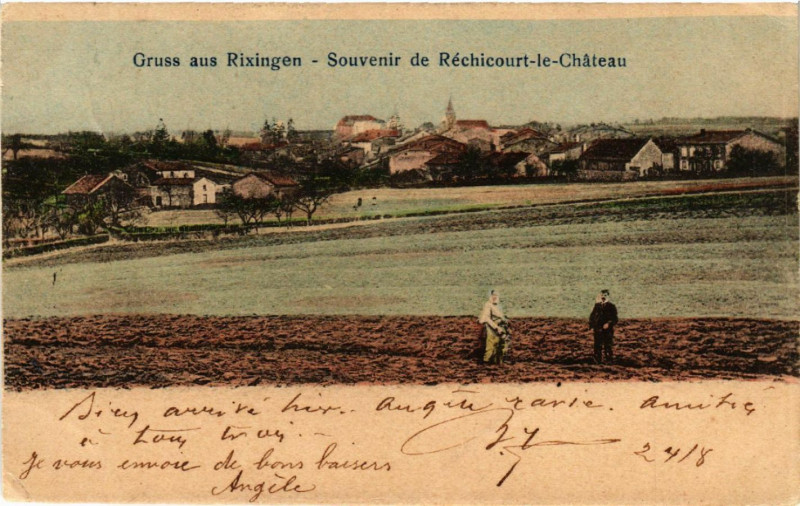 Gruss aus Rixingen - Souvenir de Réchicourt-le-Château
Bien arrivé hier. Angèle ravie. Amitiés
à tous trois.
24/8
Je vous envoie de bons baisers
Angèle